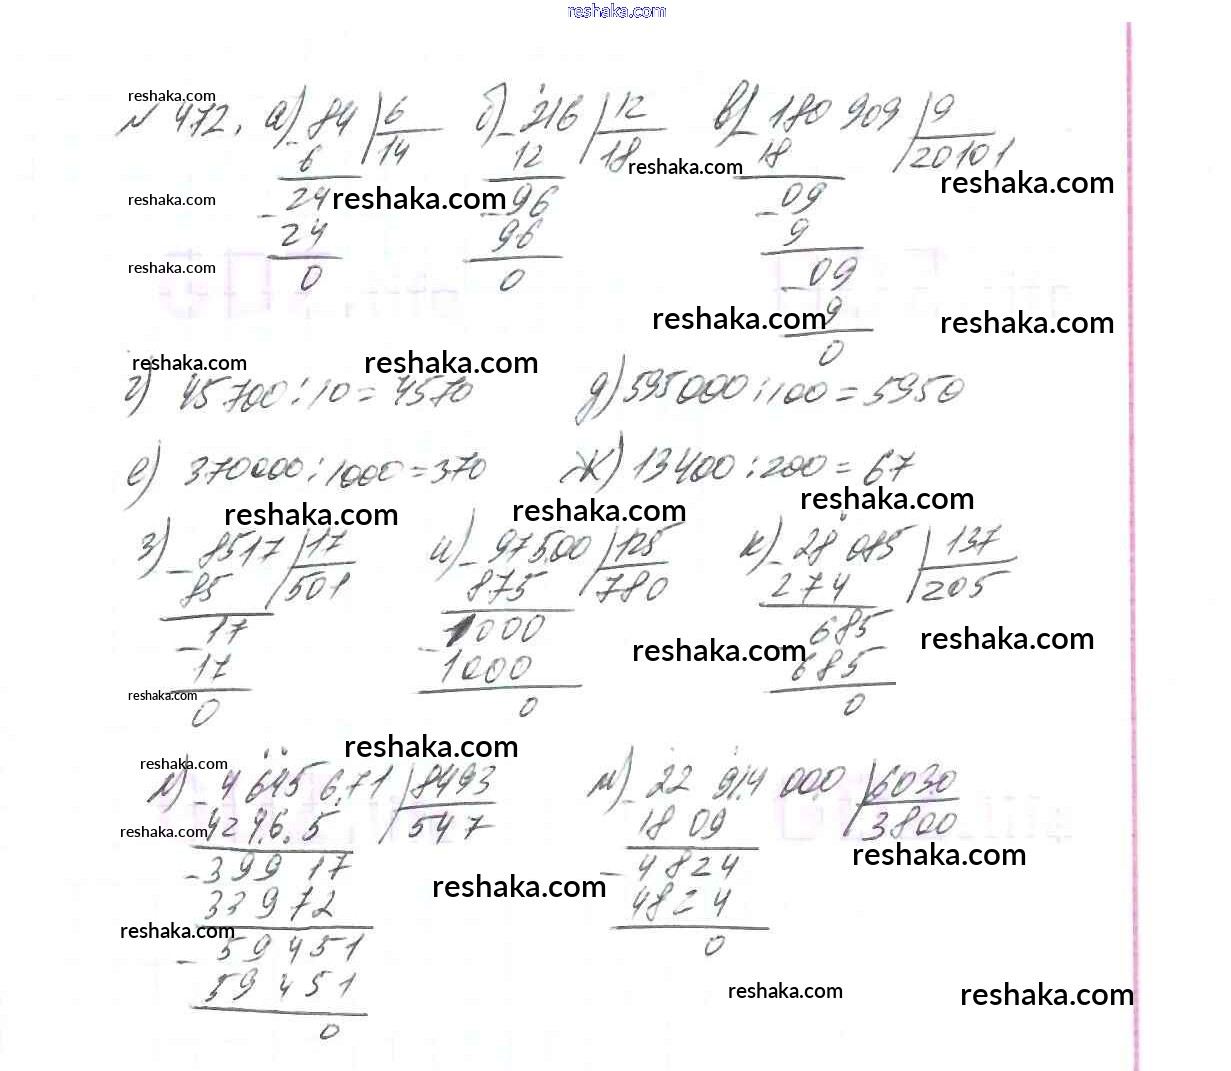 reshaka.com
reshaka.com
№ 472. а) 84 | 6 б) 216 | 12 в) 180 909 | 9
6 14 12 18 18 20101
reshaka.com reshaka.com
reshaka.com reshaka.com
24 96 09
24 96 9
reshaka.com
0 0 09
reshaka.com reshaka.com
9
0
reshaka.com reshaka.com
г) 45700 : 10 = 4570 д) 595000 : 100 = 5950
е) 370000 : 1000 = 370 ж) 13400 : 200 = 67
reshaka.com reshaka.com reshaka.com
з) 8517 | 17 и) 97500 | 125 к) 28 085 | 137
85 501 875 780 274 205
17 1000 685
reshaka.com reshaka.com
17 1000 685
reshaka.com
0 0 0
reshaka.com
reshaka.com
л) 4 645 671 | 8493 м) 22 914 000 | 6030
4246 5 547 18 09 3800
reshaka.com
reshaka.com
399 17 4824
reshaka.com
33 972 4824
reshaka.com
59 451 0
59 451
reshaka.com reshaka.com
0